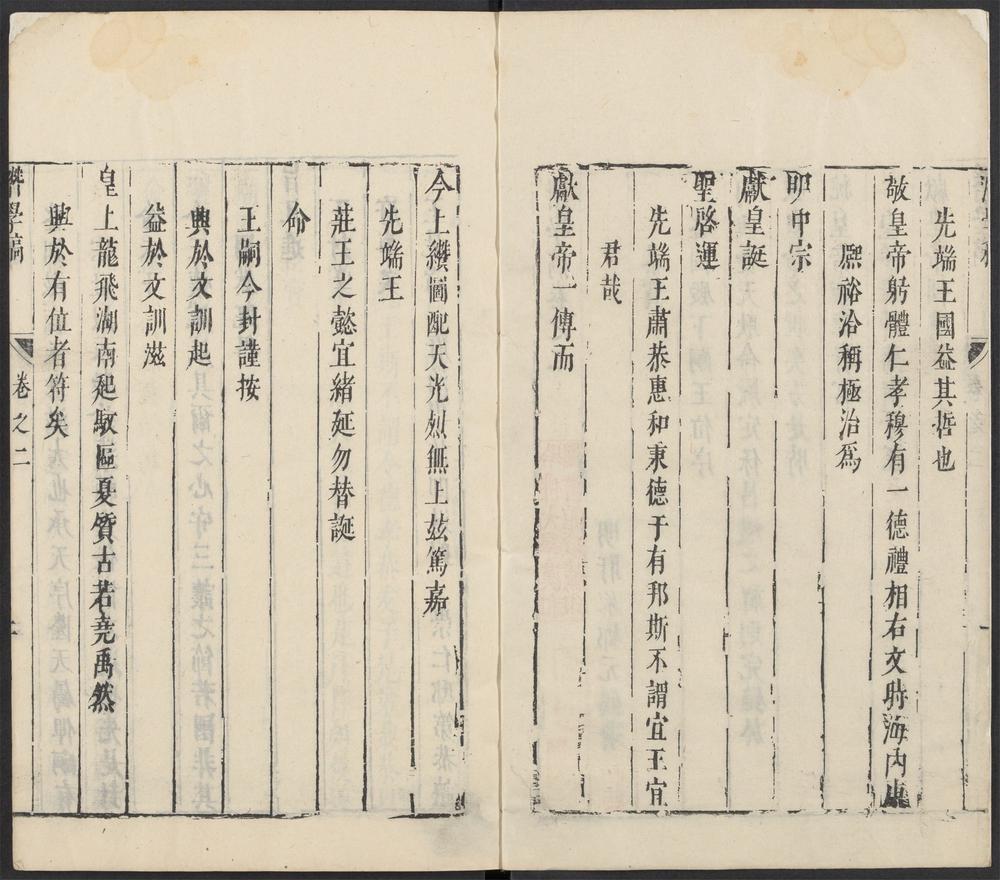 先端王國益其哲也
敬皇帝躬體仁孝穆有一德禮相右文時海内
熈裕洽稱極治爲
明中宗
獻皇誕
聖啓運
先端王肅恭惠和秉德于有邦斯不謂宜王宜
君哉
獻皇帝一傳而
今上纘圖配天光烈無上玆篤嘉
先端王
莊王之懿宜緒延勿替誕
命
王嗣今封謹按
興於文訓起
益於文訓滋
皇上龍飛湖南起馭區夏質古若堯禹然
興於有值者符矣
學稿
卷之二